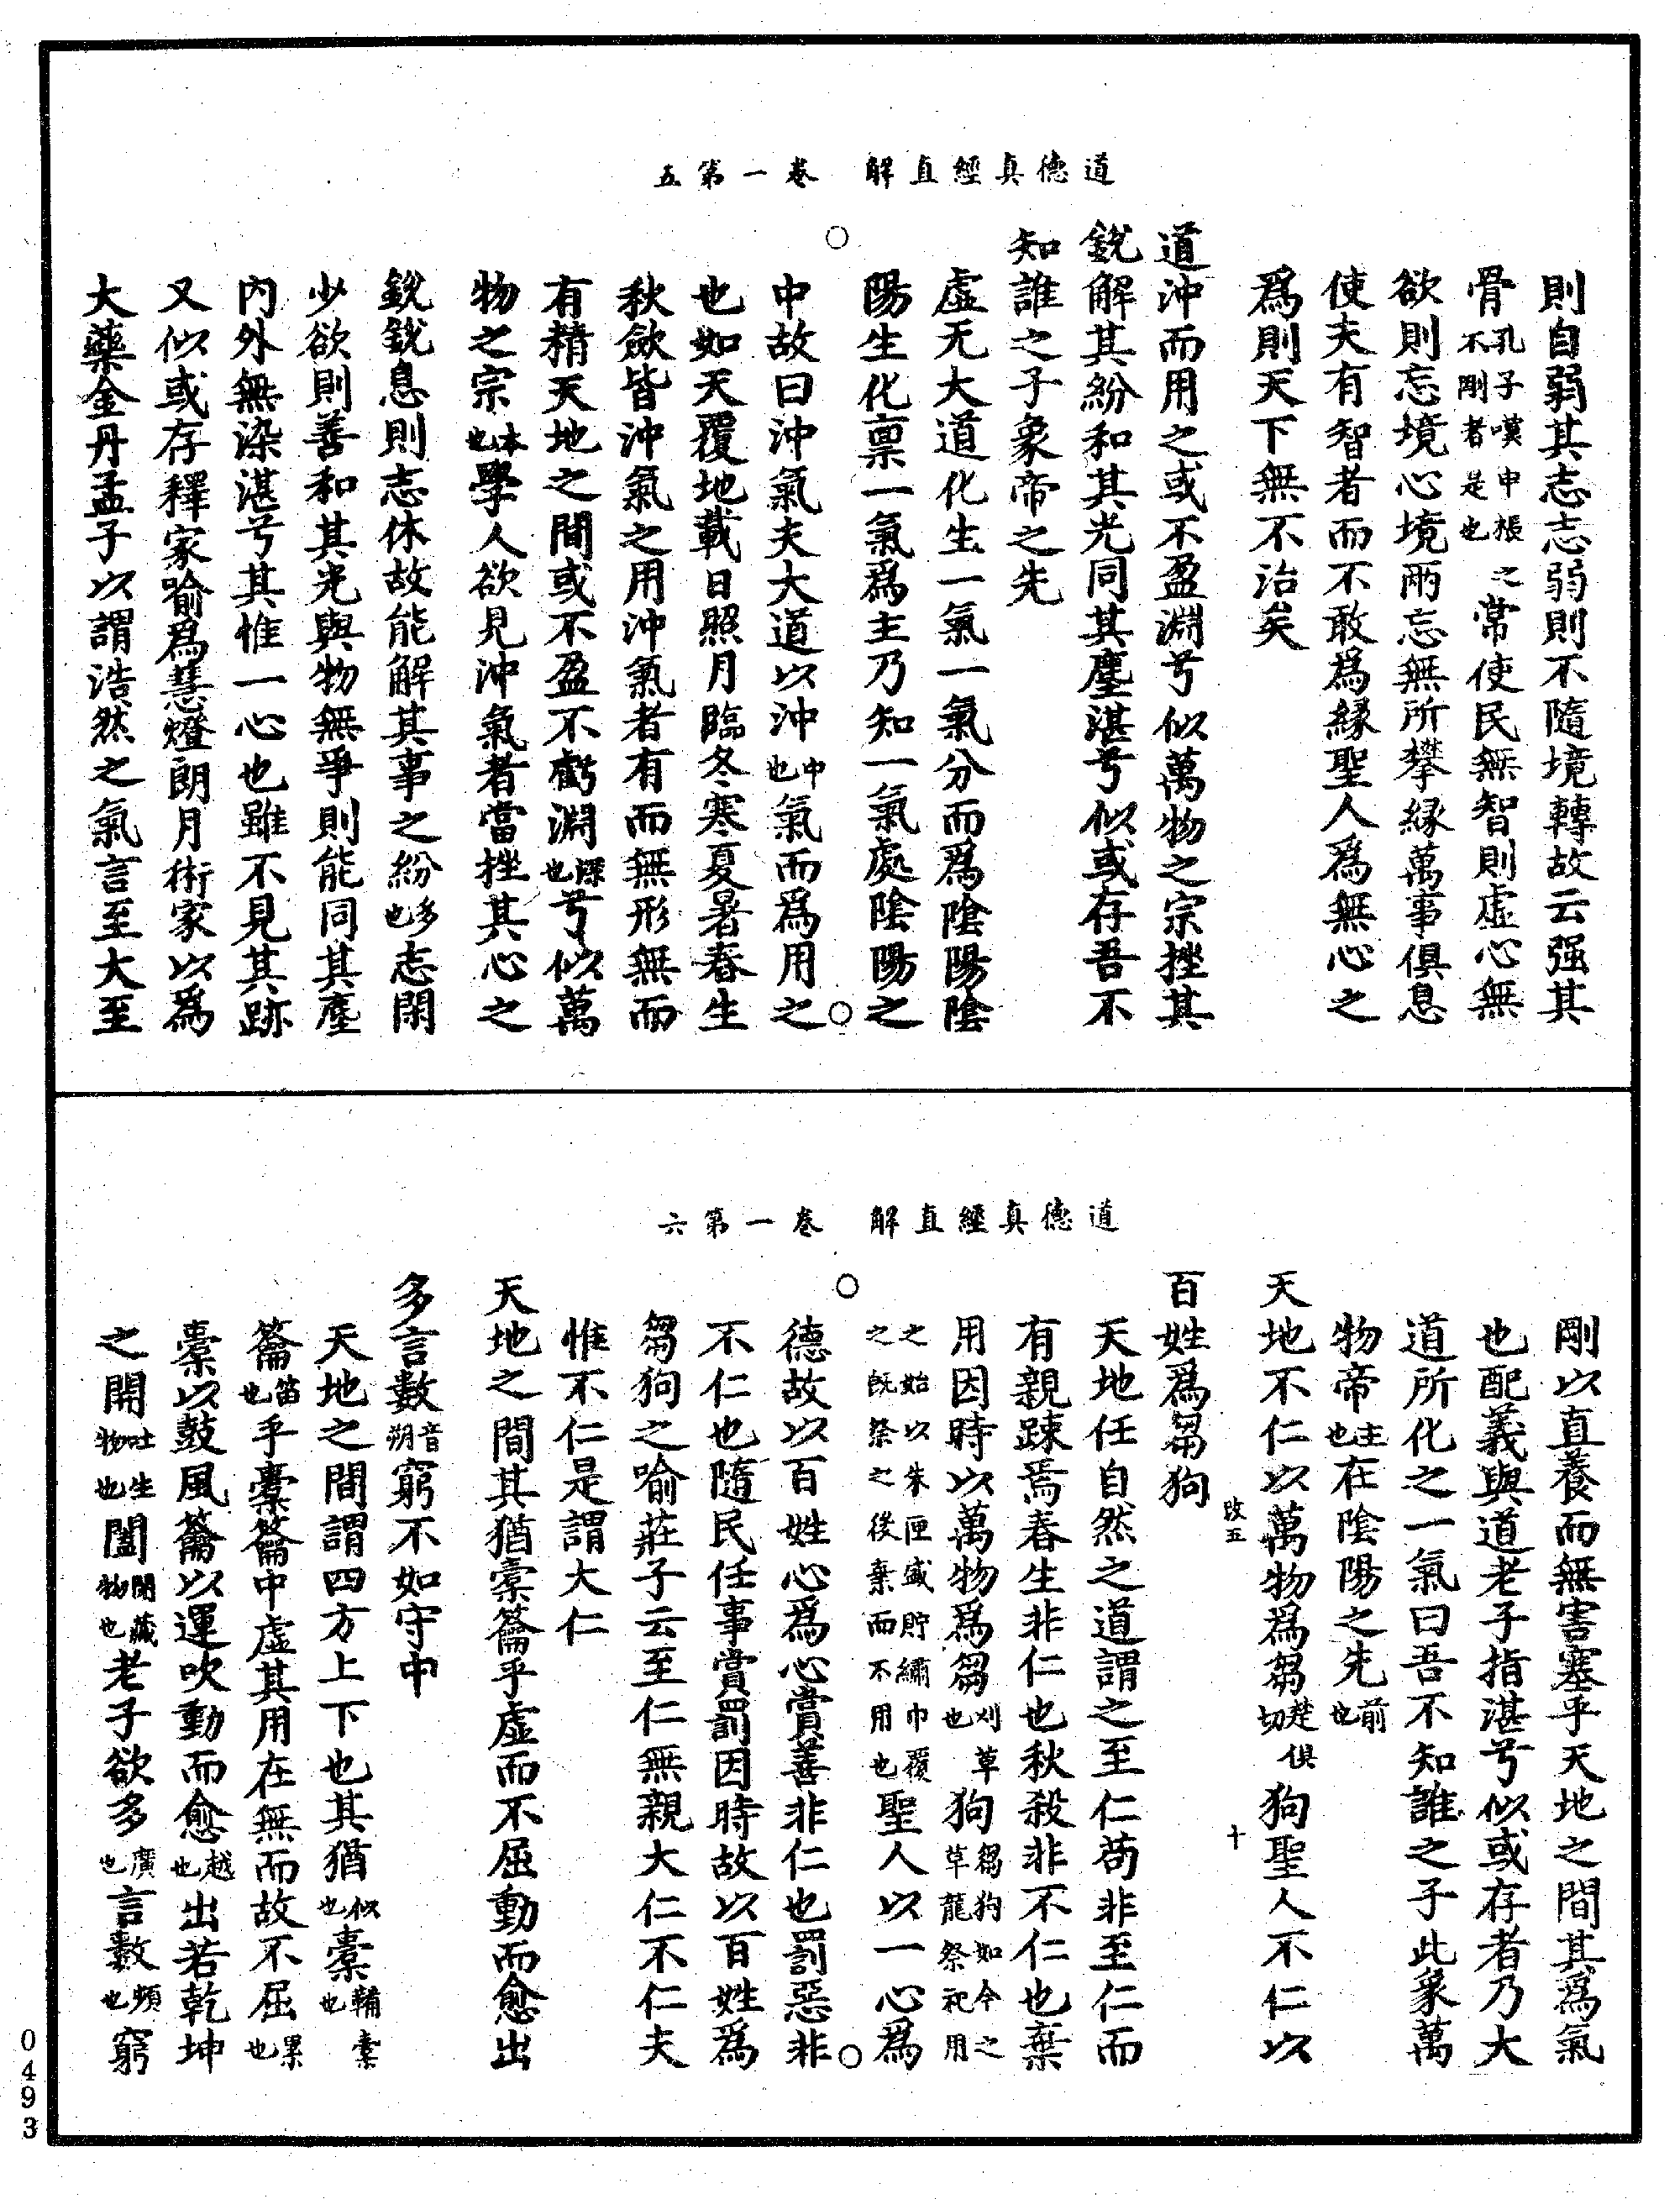 道德真經直解　卷一第五
則自弱其志志弱則不隨境轉故云强其
骨孔子嘆申棖之不剛者是也常使民無智則虛心無
欲則忘境心境兩忘無所攀緣萬事俱息
使夫有智者而不敢爲緣聖人爲無心之
爲則天下無不治矣
道沖而用之或不盈淵兮似萬物之宗挫其
銳解其紛和其光同其塵湛兮似或存吾不
知誰之子象帝之先
虛无大道化生一氣一氣分而爲陰陽陰
陽生化禀一氣爲主乃知一氣處陰陽之
中故曰沖氣夫大道以沖中也氣而爲用之
也如天覆地載日照月臨冬寒夏暑春生
秋斂皆沖氣之用沖氣者有而無形無而
有精天地之間或不盈不虧淵深也兮似萬
物之宗本也學人欲見沖氣者當挫其心之
銳銳息則志休故能解其事之紛多也志閑
少欲則善和其光與物無爭則能同其塵
內外無染湛兮其惟一心也雖不見其跡
又似或存釋家喻爲慧燈朗月術家以爲
大藥金丹孟子以謂浩然之氣言至大至
道德真經直解　卷一第六
剛以直養而無害塞乎天地之間其爲氣
也配義與道老子指湛兮似或存者乃大
道所化之一氣曰吾不知誰之子此象萬
物帝主也在陰陽之先前也
天地不仁以萬物爲芻楚俱切狗聖人不仁以
改五　十
百姓爲芻狗
天地任自然之道謂之至仁苟非至仁而
有親踈焉春生非仁也秋殺非不仁也棄
用因時以萬物爲芻刈草也狗芻狗如今之草龍祭祀用
之始以朱匣盛貯繡巾覆之旣祭之後棄而不用也聖人以一心爲
德故以百姓心爲心賞善非仁也罰惡非
不仁也隨民任事賞罰因時故以百姓爲
芻狗之喻莊子云至仁無親大仁不仁夫
惟不仁是謂大仁
天地之間其猶橐籥乎虛而不屈動而愈出
多言數音朔窮不如守中
天地之間謂四方上下也其猶似也橐鞴橐也
籥笛也乎橐籥中虛其用在無而故不屈累也
橐以鼓風籥以運吹動而愈越也出若乾坤
之開吐生物也闔閉藏物也老子欲多廣也言數頻也窮
0493